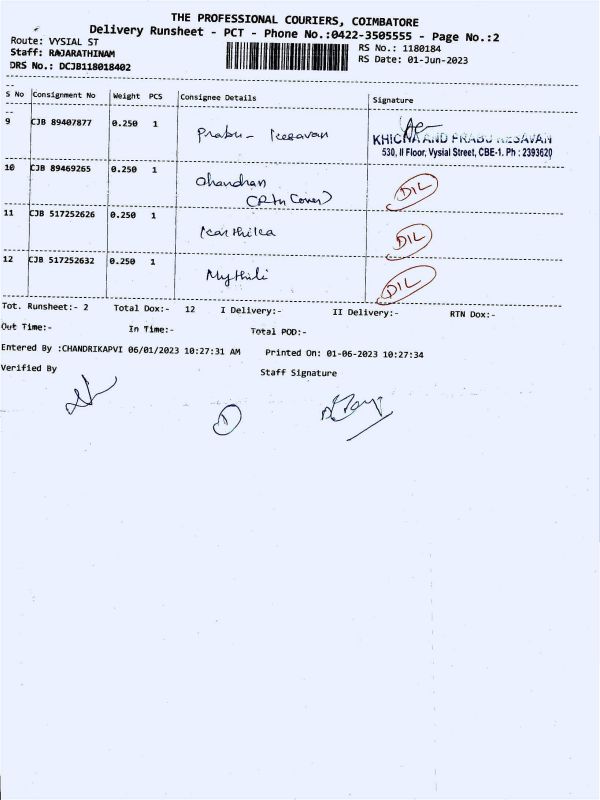 THE PROFESSIONAL COURIERS, COIMBATORE
Delivery Runsheet - PCT - Phone No.:0422-3505555 - Page No.:2
Route: VYSIAL ST
Staff: RAJARATHINAM
DRS No.: DCJB118018402
RS No.: 1180184
RS Date: 01-Jun-2023
S No Consignment No Weight PCS Consignee Details Signature
9 CJB 89407877 0.250 1 Prabu - Kesavan
KHICHA AND PRABU KESAVAN
530, II Floor, Vysial Street, CBE-1. Ph : 2393620
10 CJB 89469265 0.250 1 Chandran D/L
(Rtn Cover)
11 CJB 517252626 0.250 1 Karthika D/L
12 CJB 517252632 0.250 1 Mythili D/L
Tot. Runsheet:- 2 Total Dox:- 12 I Delivery:- II Delivery:- RTN Dox:-
Out Time:- In Time:- Total POD:-
Entered By :CHANDRIKAPVI 06/01/2023 10:27:31 AM Printed On: 01-06-2023 10:27:34
Verified By Staff Signature